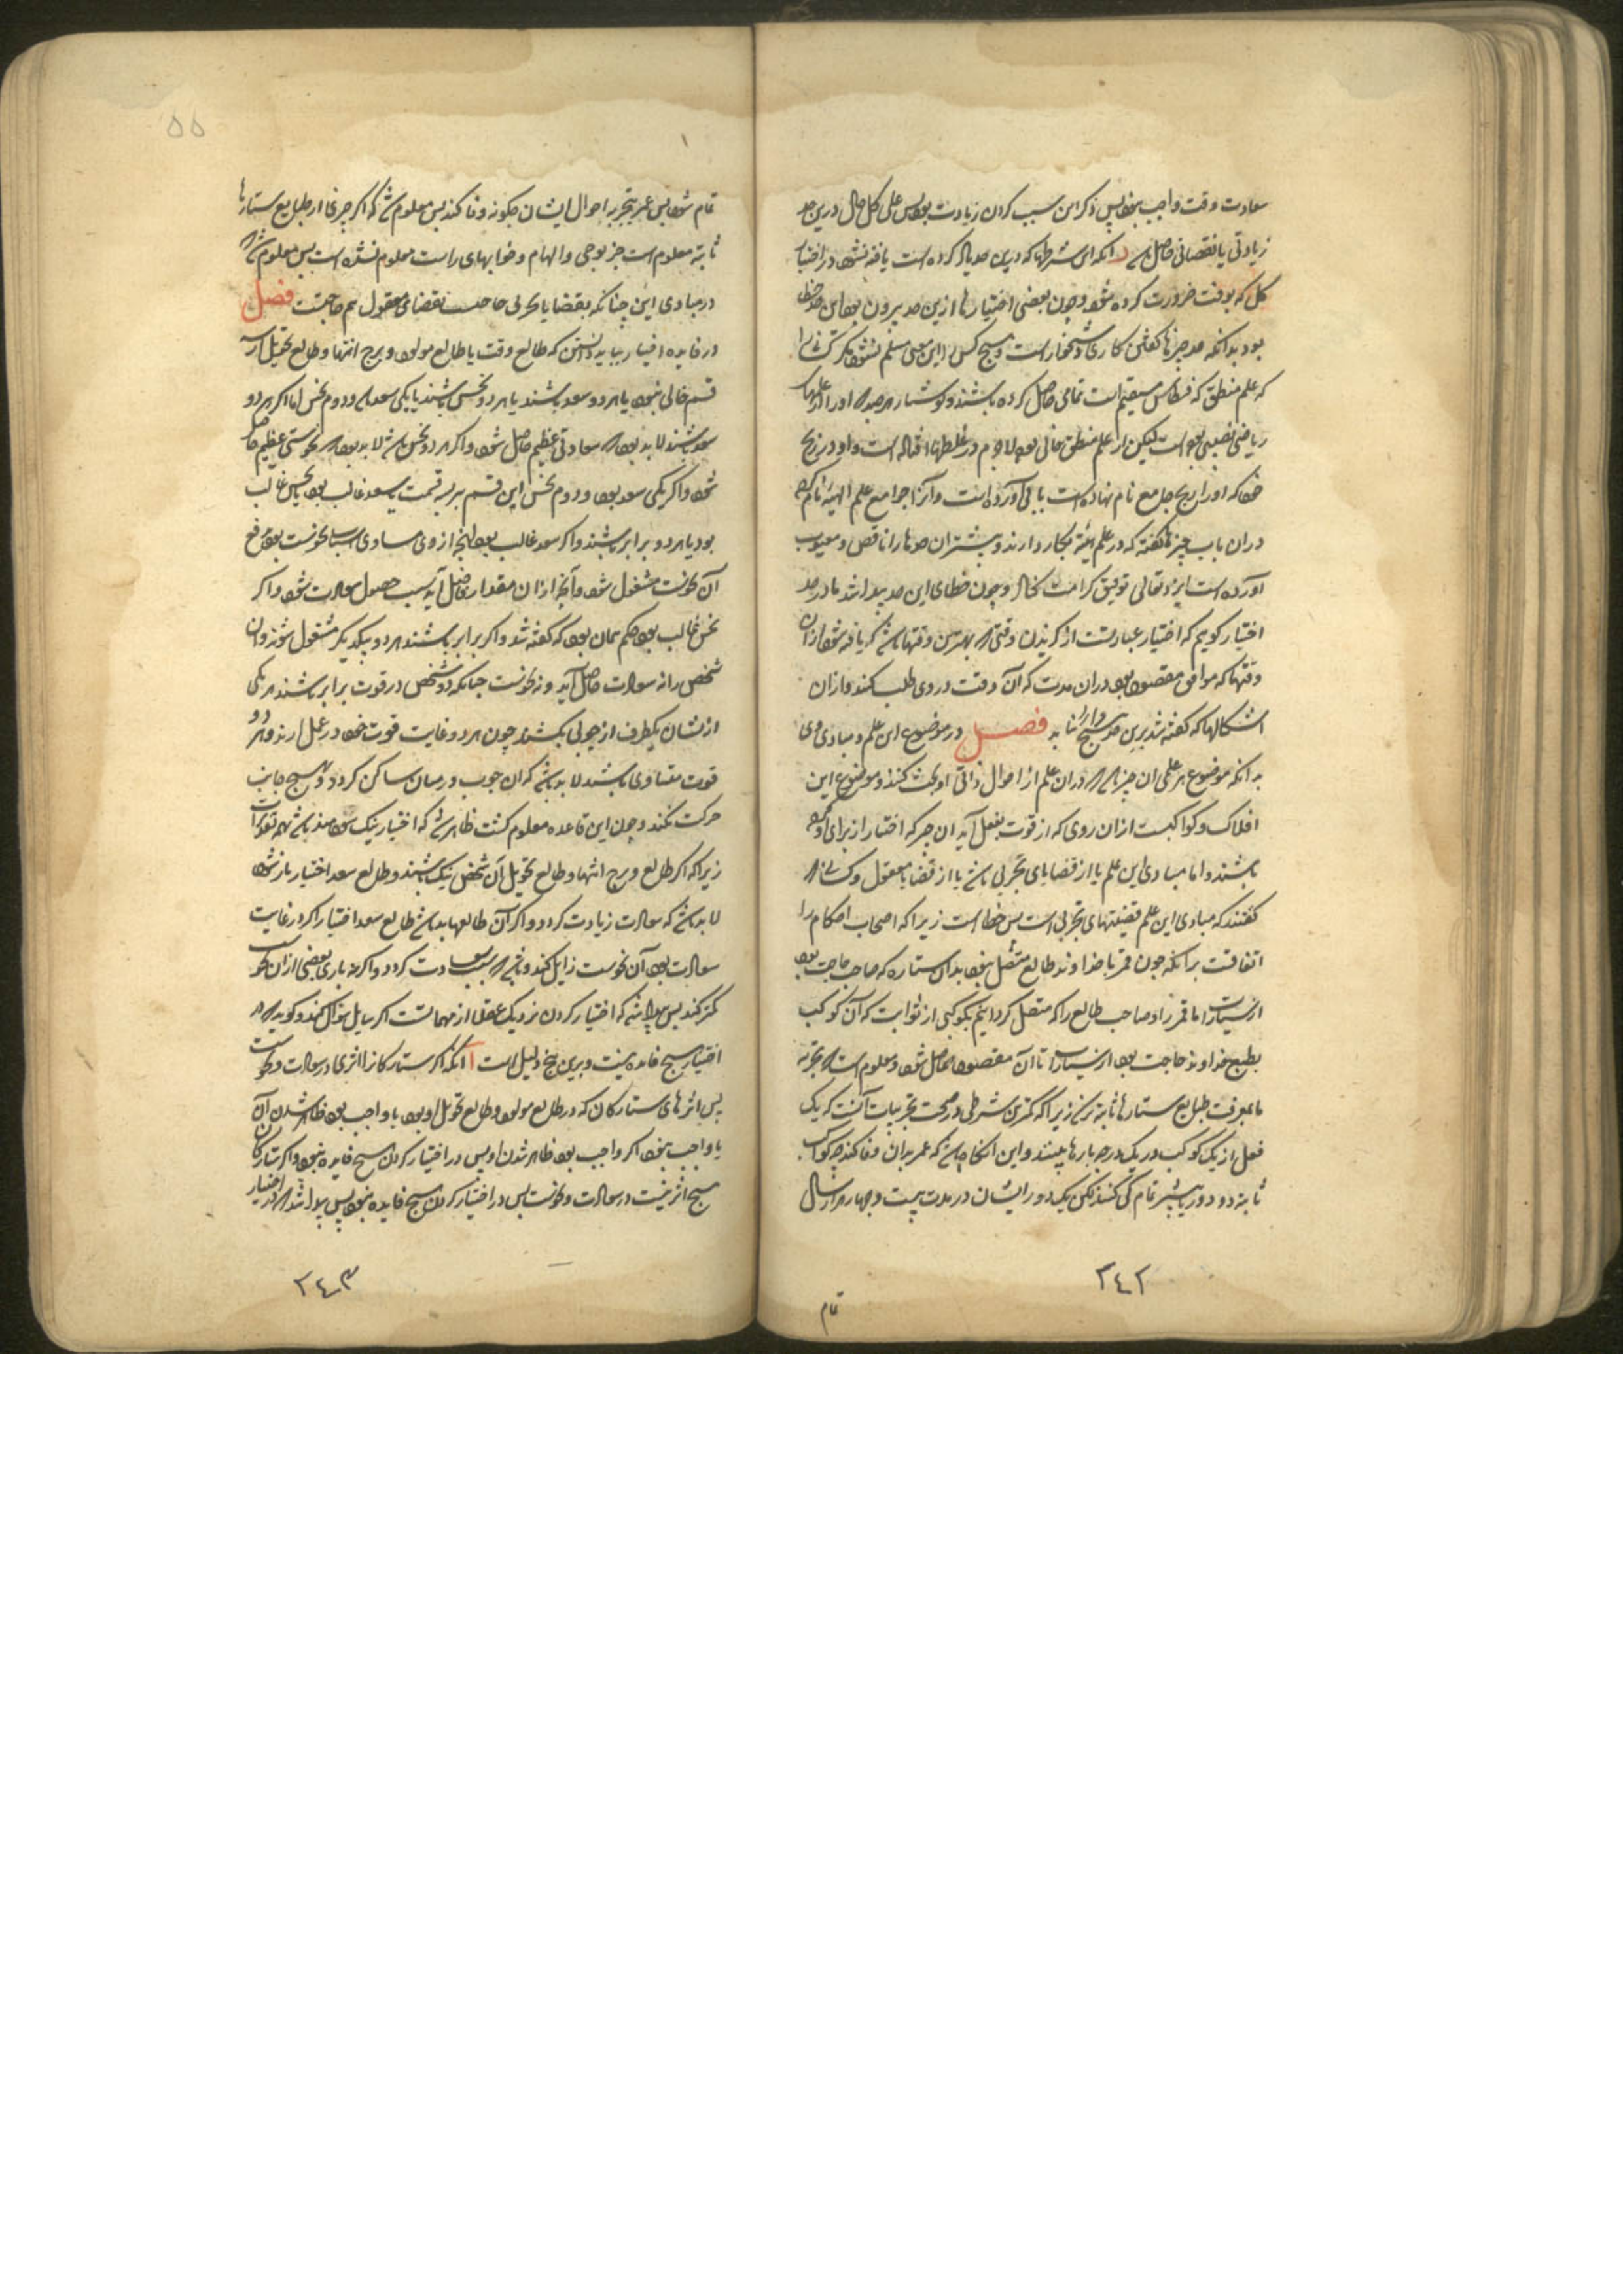 سعادت وقت واجب نبود پس ذکر این سبب کردن زیادت بود پس علی کل حال درین حد
زیادتی یا نقصانی حاصل باشد د آنکه این شرطها که درین حد یاد کرده است یافته نشود در اختیار
کل که بوقت ضرورت کرده شود و چون بعضی اختیارها ازین حد بیرون بود این حد خطا
بود بدانکه حد چیزها گفتن کاری دشخوار است و هیچ کس را این معنی مسلم نشود مگر کسانی را
که علم منطق که قسطاس مستقیم است تمامی حاصل کرده باشند و کوشیار هرچند او را از علمهای
ریاضی نصیبی بوده است لیکن از علم منطق خالی بود لاجرم در غلطها افتاده است و او در زیج
خود که او را زیج جامع نام نهاده است بابی آورده است و آنرا جوامع علم الهیئه نام کرده
در آن باب چیزها گفته که در علم هیئة بکار دارند و بیشتر آن حدها را ناقص و معیوب
آورده است ایزد تعالی توفیق کرامت کناد و چون خطای این حد پیدا شد ما در حد
اختیار گویم که اختیار عبارتست از گزیدن وقتی که بهترین وقتها باشد که یافته شود از آن
وقتها که موافق مقصود بود در آن مدت که آن وقت در وی طلب کنند و از آن
اشکالها که گفته شد برین حد هیچ وارد نیاید فصل در موضوع این علم و مبادی وی
بدانکه موضوع هر علمی آن چیز باشد که در آن علم از احوال ذاتی او بحث کنند و موضوع این
افلاک و کواکبست از آن روی که از قوت بفعل آید آن چیز که اختیار از برای او کرده
باشند و اما مبادی این علم یا از قضایای تجربی باشد یا از قضایا معقول و کسانی که
گفتند که مبادی این علم قضیتهای تجربی است پس خطا است زیرا که اصحاب احکام را
اتفاقست برآنکه چون قمر با خداوند طالع متصل نبود بدان ستاره که صاحب حاجت بود
از سیارات اما قمر را و صاحب طالع را که متصل گردانیم بکوکبی از ثوابت که آن کوکب
بطبع خداوند حاجت بود از سیارات تا آن مقصود حاصل شود و معلوم است که بتجربه
ما بمعرفت طبایع ستارها ثابته نرسد زیرا که کمترین شرطی در صحت تجربیات آنست که یک
فعل از یک کوکب در یک درجه بارها ببینند و این آنگاه باشد که عمر بدان وفا کند چه کواکب
ثابته دو دور یا بیشتر تمام کی کنند لکن یک دور ایشان در مدت بیست و چهار هزار سال
۲۴۲
تمام
۵۵
تمام شود پس عمر بتجربه احوال ایشان چگونه وفا کند پس معلوم شد که اگر چیزی از طبایع ستارها
ثابته معلوم است جز بوحی و الهام و خوابهای راست معلوم نشده است پس معلوم شد که
در مبادی این چنانکه بقضایا تجربی حاجتست بقضایای معقول هم حاجتست فصل
در فایده اختیار بباید دانستن که طالع وقت یا طالع مولود و برج انتها و طالع تحویل از سه
قسم خالی نبود یا هر دو سعد باشند یا هر دو نحس باشند یا یکی سعد باشد و دوم نحس اما اگر هر دو
سعد باشند لابد بود که سعادتی عظیم حاصل شود و اگر هر دو نحس باشد لابد بود که نحوستی عظیم حاصل
شود و اگر یکی سعد بود و دوم نحس این قسم بر سه قسمت یا سعد غالب بود یا نحس غالب
بود یا هر دو برابر باشند و اگر سعد غالب بود آنچه از وی مساوی اسباب نحوست بود بدفع
آن نحوست مشغول شود و آنچه از آن مقدار فاضل آید سبب حصول سعادت شود و اگر
نحس غالب بود حکم همان بود که گفته شد و اگر برابر باشند هر دو بیکدیگر مشغول شوند و آن
شخص را نه سعادت حاصل آید و نه نحوست چنانکه دو شخص در قوت برابر باشند هر یکی
از ایشان یکطرف از چوبی بکشند چون هر دو غایت قوت خود در عمل آرند و هر دو
قوت متساوی باشند لابد باشد که آن چوب در میان ساکن گردد و هیچ جانب
حرکت نکند و چون این قاعده معلوم گشت ظاهر شد که اختیار نیک سودمند باشد بهمه تقدیرات
زیرا که اگر طالع و برج انتها و طالع تحویل آن شخص نیک باشند و طالع سعد اختیار یار شود
لابد باشد که سعادت زیادت گردد و اگر آن طالعها بد باشد طالع سعد اختیار اگر در غایت
سعادت بود آن نحوست زایل کند و باقی سبب سعادت گردد و اگر نه باری بعضی از آن نحوست
کمتر کند پس پیدا شد که اختیار کردن نزدیک عقلا از مهماتست اگر سایل سؤال کند و گوید که در
اختیار هیچ فایده نیست و برین پنج دلیل است آ آنکه اگر ستارگان را اثری در سعادت و نحوست
پس اثرهای ستارگان که در طالع مولود و طالع تحویل او بود یا واجب بود ظاهر شدن آن
یا واجب نبود اگر واجب بود ظاهر شدن او پس در اختیار کردن هیچ فایده نبود و اگر ستارگان
هیچ اثر نیست در سعادت و نحوست پس در اختیار کردن هیچ فایده نبود پس پیدا شد که در اختیار
۲۴۳